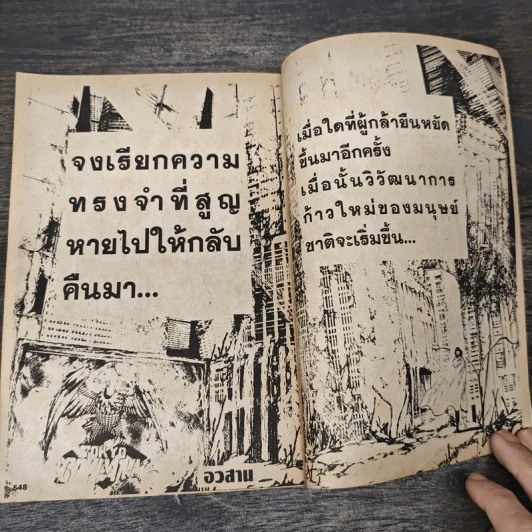 จงเรียกความ
ทรงจำที่สูญ
หายไปให้กลับ
คืนมา...
อวสาน
548
เมื่อใดที่ผู้กล้ายืนหยัด
ขึ้นมาอีกครั้ง
เมื่อนั้นวิวัฒนาการ
ก้าวใหม่ของมนุษย์
ชาติจะเริ่มขึ้น...